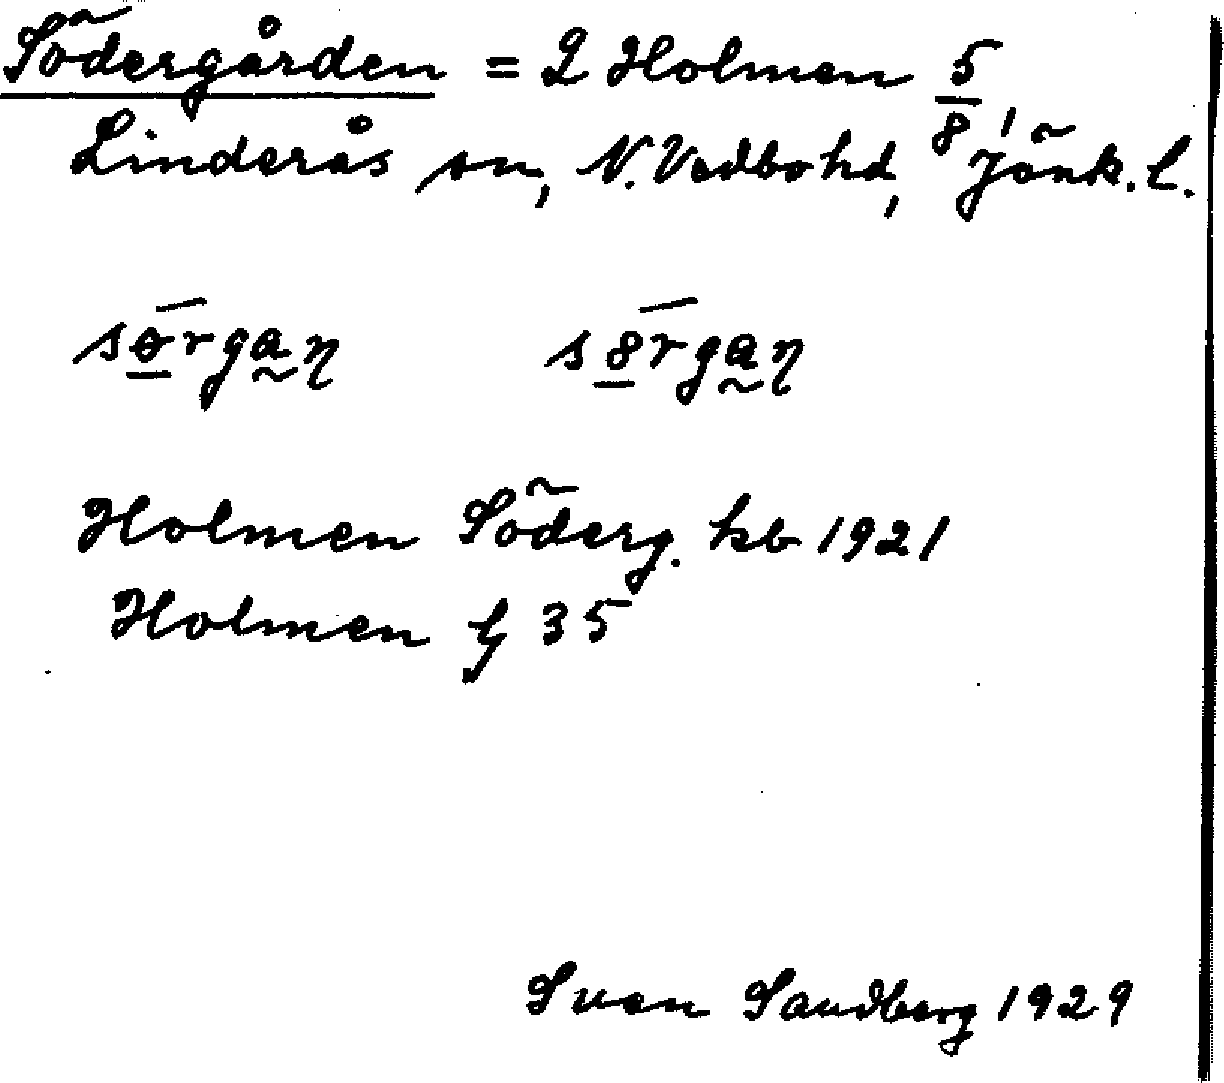 Södergården = 2 Holmen 5/8,
Linderås sn, N. Vedbo hd, Jönk. l.
sɵ̱̄rga̰ŋ s8̱̄rga̰ŋ
Holmen Söderg. kb 1921
Holmen 35
Sven Sandberg 1929